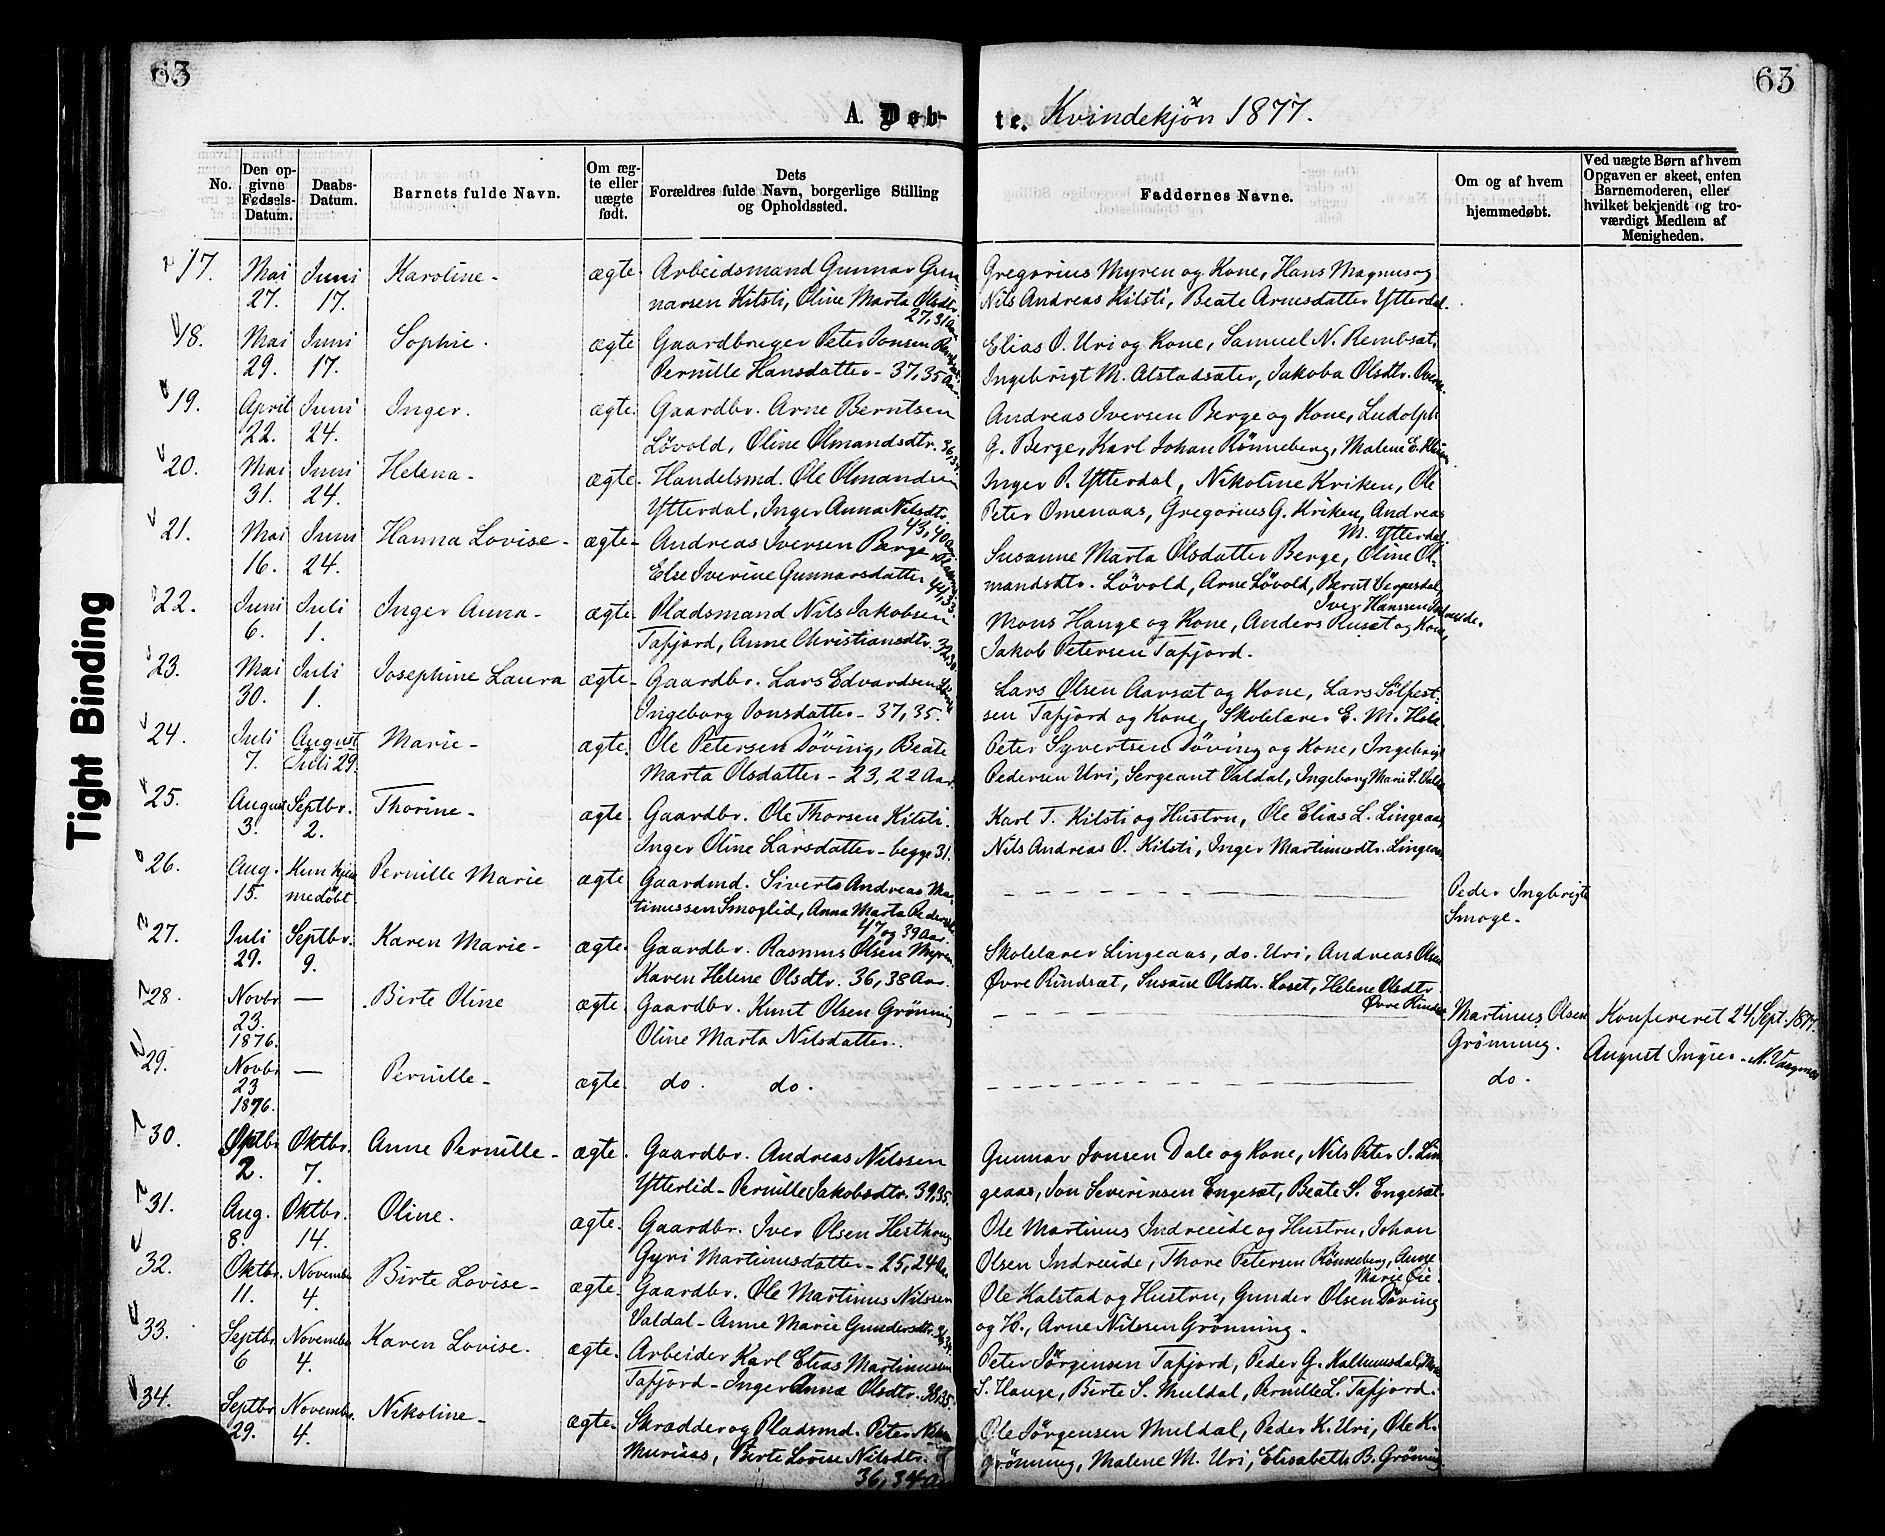 63
63
A. Døb-
te. Kvindekjön 1877.
No.
Den op-
givne
Fødsels-
Datum.
Daabs-
Datum.
Barnets fulde Navn.
Om æg-
te eller
uægte
født.
Dets
Forældres fulde Navn, borgerlige Stilling
og Opholdssted.
Faddernes Navne.
Om og af hvem
hjemmedøbt.
Ved uægte Børn af hvem
Opgaven er skeet, enten
Barnemoderen, eller
hvilket bekjendt og tro-
værdigt Medlem af
Menigheden.
17. Mai Juni Karoline - ægte Arbeidsmand Gunnar Gun- Gregorius Myren og Kone, Hans Magnus og
27. 17. narsen Kilsti, Oline Marta Olsdtr. Nils Andreas Kilsti, Beate Arnesdatter Ytterdal.
27, 31 Aar
18. Mai Juni Sophie. ægte Gaardbruger Peter Jonsen Elias O. Uri og Kone, Samuel N. Rembsæt,
29. 17. Pernille Hansdatter - 37, 35 Aar Ingebrigt M. Alstadsæter, Jakoba Olsdtr.
19. April Juni Inger. ægte. Gaardbr. Arne Berntsen Andreas Iversen Berge og Kone, Ludolph
22. 24. Løvold, Oline Olmandsdtr. G. Berge, Karl Johan Rönneberg, Malene E.
20. Mai Juni Helena - ægte. Handelsmd. Ole Olmandsen Inger P. Ytterdal, Nikoline Kriken, Ole
31. 24. Ytterdal, Inger Anna Nilsdtr. Peter Omenaas, Gregorius G. Kriken, Andreas
43, 40 Aar M. Ytterdal.
21. Mai Juni Hanna Lovise - ægte - Andreas Iversen Berge Susanne Marta Olsdatter Berge, Oline Ol-
16. 24. Else Iverine Gunnarsdatter 44, 33. mandsdtr. Lövold, Arne Lövold, Bernt
Iver Hanssen
22. Juni Juli Inger Anna - ægte. Pladsmand Nils Jakobsen Mons Hauge og Kone, Anders Rusæt og Kone,
6. 1. Tafjord, Anne Christiansdtr. 32, 30. Jakob Petersen Tafjord.
23. Mai Juli Josephine Laura ægte - Gaardbr. Lars Edvardsen Lars Olsen Aarsæt og Kone, Lars Sölfest-
30. 1. Ingeborg Jonsdatter - 37, 35. sen Tafjord og Kone, Skolelærer E. M. Hole
24. Juli August Marie - ægte. Ole Petersen Döving, Beate Peter Syvertsen Döving og Kone, Ingebrigt
7. Juli 29. Marta Olsdatter - 23, 22 Aar. Pedersen Uri, Sergeant Valdal, Ingeborg Marie S.
25. August Septbr. Thorine - ægte. Gaardbr. Ole Thorsen Kilsti. Karl T. Kilsti og Hustru, Ole Elias L. Lingeaas,
3. 2. Inger Oline Larsdatter - begge 31. Nils Andreas O. Kilsti, Inger Martinusdtr. Lingeaas
26. Aug. Kun hjem Pernille Marie ægte Gaardmd. Sivert Andreas Mar- Peder Ingbrigts
15. medøbt tinussen Smoglid, Anna Marta Pedersdtr. Smoge.
47 og 39 Aar.
27. Juli Septbr. Karen Marie - ægte. Gaardbr. Rasmus Olsen Myren. Skolelærer Lingeaas, do. Uri, Andreas Olsen
29. 9. Karen Helene Olsdtr. 36, 38 Aar. Övre Rindsæt, Susane Olsdtr. Loset, Helene Olsdtr
Övre Rindsæt
28. Novbr — Birte Oline ægte. Gaardbr. Knut Olsen Grönning Martinus Olsen Konfereret 24 Sept. 1877.
23. Oline Marta Nilsdatter. Grönning. August Ingier - N.
1876.
29. Novbr — Pernille - ægte. do. do. do.
23
1876.
30. Septbr Oktbr. Anne Pernille - ægte. Gaardbr. Andreas Nilssen Gunnar Jonsen Dale og Kone, Nils Peter S. Lin
2. 7. Ytterlid - Pernille Jakobsdtr. 39, 35. geaas, Jon Severinsen Engesæt, Beate S. Engesæt.
31. Aug. Oktbr. Oline. ægte. Gaardbr. Iver Olsen Ole Martinus Indreeide og Hustru, Johan
8. 14. Gyri Martinusdatter - 25, 24 Aar Olsen Indreeide, Thore Petersen Rönneberg, Anne
Marie
32. Oktbr. November Birte Lovise - ægte. Gaardbr. Ole Martinus Nilssen Ole Kalstad og Hustru, Gunder Olsen Döving
11. 4. Valdal - Anne Marie Gundersdtr. og H., Arne Nilssen Grönning.
33. Septbr November Karen Lovise. ægte. Arbeider Karl Elias Martinussen Peter Jörgensen Tafjord, Peder G. Kaldhusdal,
6 4. Tafjord - Inger Anna Olsdtr. S. Hauge, Birte S. Muldal, Pernille L. Tafjord.
34. Septbr November Nikoline - ægte. Skrædder og Pladsmd. Peter Ole Jörgensen Muldal, Peder K. Uri, Ole K.
29. 4. Muriaas, Birte Lovise Nilsdtr. Grönning, Malene M. Uri, Elisabeth B. Gröning.
36, 34 Aar
Tight Binding